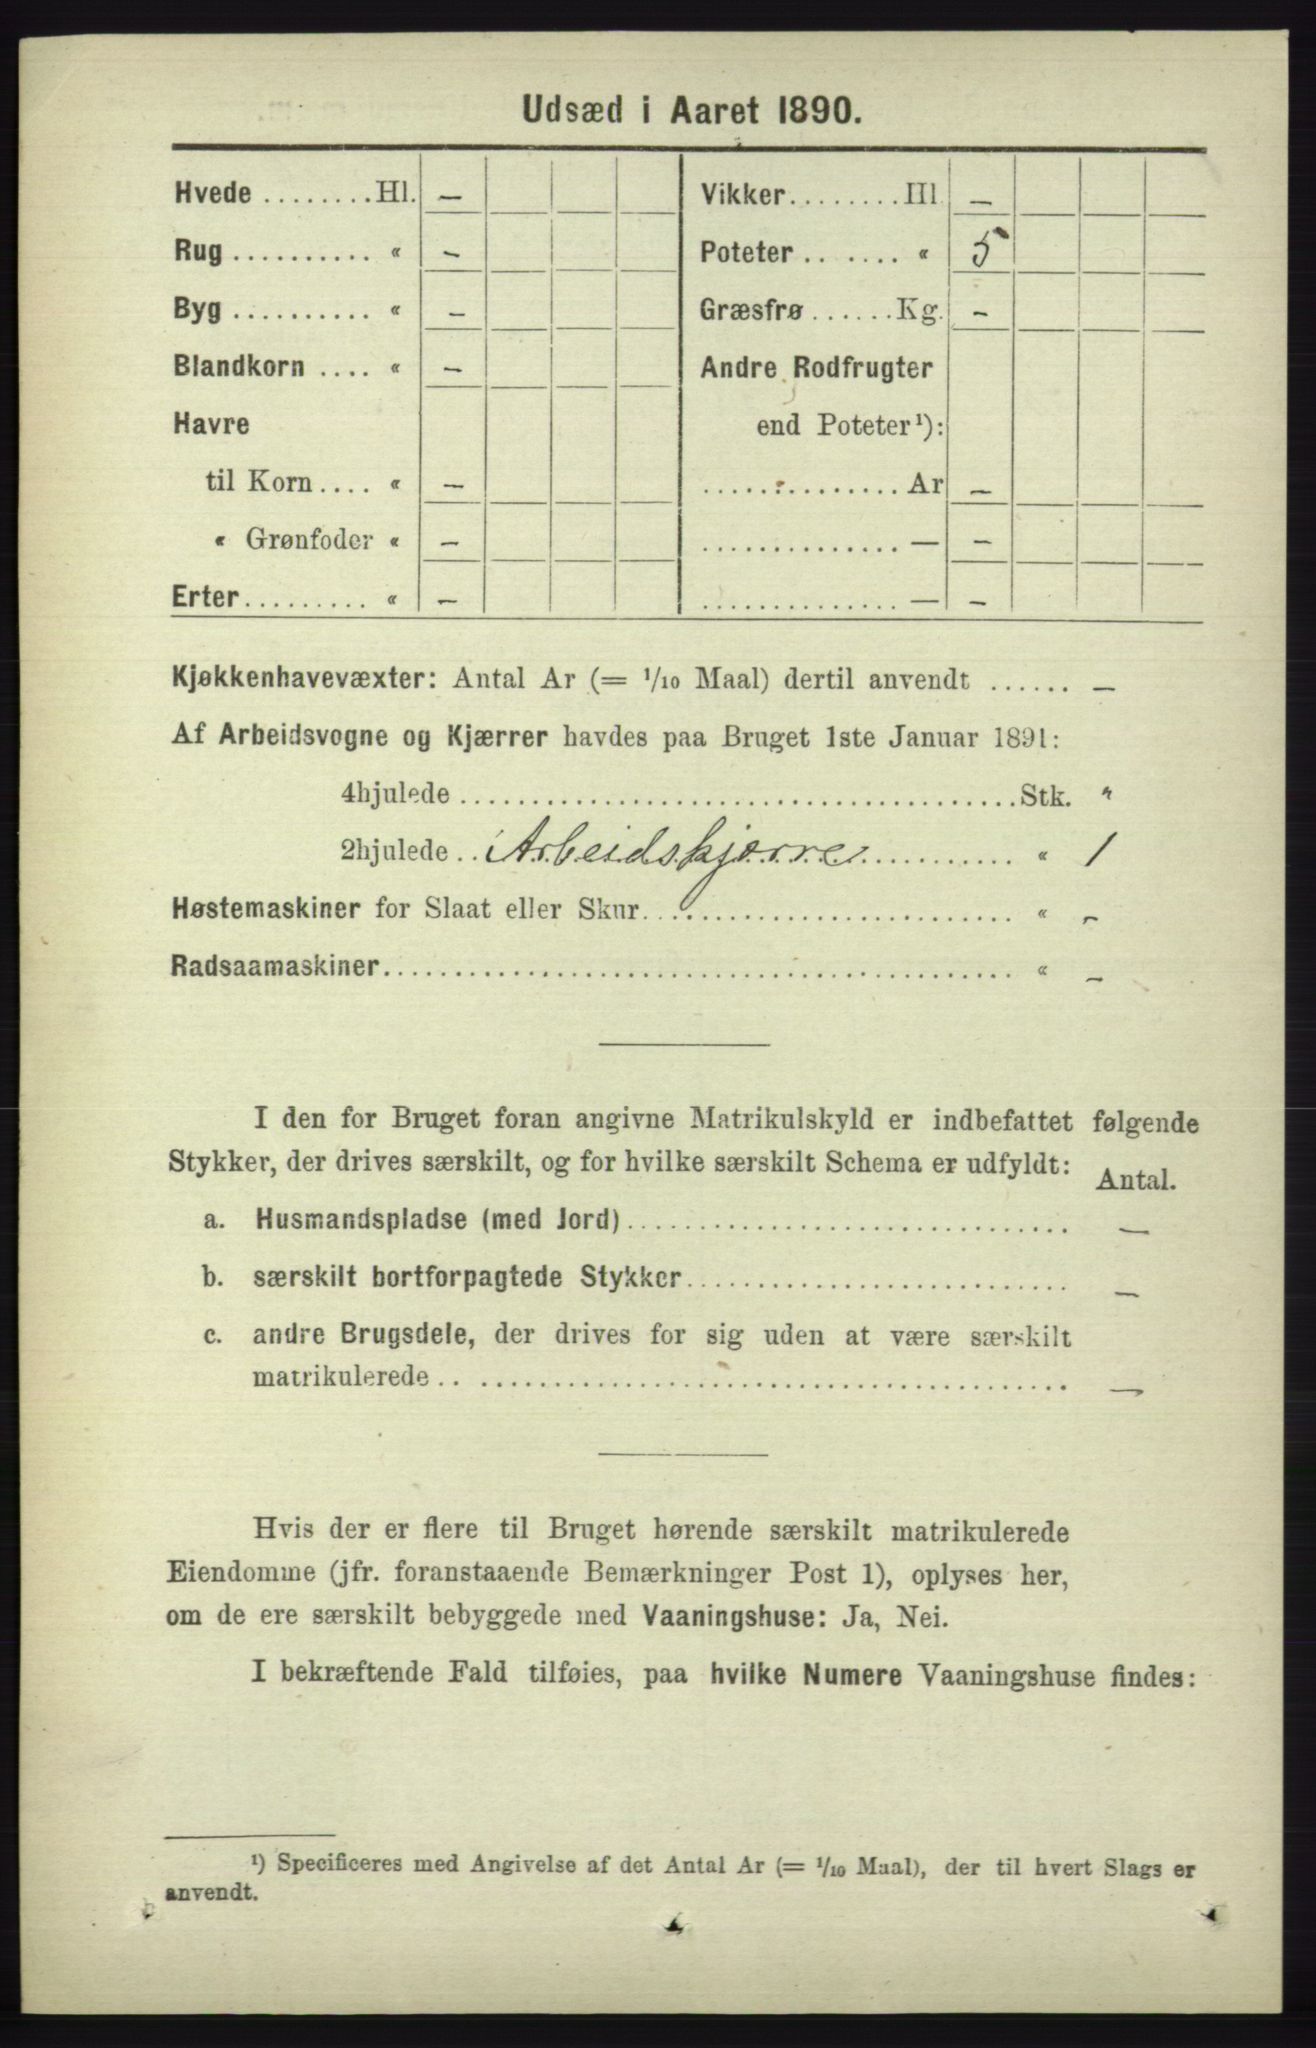 Udsæd i Aaret 1890.
Hvede ........ Hl. –
Rug .......... « –
Byg .......... « –
Blandkorn .... « –
Havre
til Korn .... « –
« Grønfoder « –
Erter ......... « –
Vikker ........ Hl –
Poteter .. ...... « 5
Græsfrø ...... Kg. –
Andre Rodfrugter
end Poteter¹):
............... Ar –
............... — –
............... — –
Kjøkkenhavevæxter: Antal Ar (= 1/10 Maal) dertil anvendt ...... –
Af Arbeidsvogne og Kjærrer havdes paa Bruget 1ste Januar 1891:
4hjulede ........................................ Stk. "
2hjulede .. Arbeidskjærre ........... « 1
Høstemaskiner for Slaat eller Skur .......................... « –
Radsaamaskiner ............................................ « –
I den for Bruget foran angivne Matrikulskyld er indbefattet følgende
Stykker, der drives særskilt, og for hvilke særskilt Schema er udfyldt: Antal.
a. Husmandspladse (med Jord) ................................ –
b. særskilt bortforpagtede Stykker ............................ –
c. andre Brugsdele, der drives for sig uden at være særskilt
matrikulerede .. ......................................... –
Hvis der er flere til Bruget hørende særskilt matrikulerede
Eiendomme (jfr. foranstaaende Bemærkninger Post 1), oplyses her,
om de ere særskilt bebyggede med Vaaningshuse: Ja, Nei.
I bekræftende Fald tilføies, paa hvilke Numere Vaaningshuse findes:
¹) Specificeres med Angivelse af det Antal Ar (= 1/10 Maal), der til hvert Slags er
anvendt.